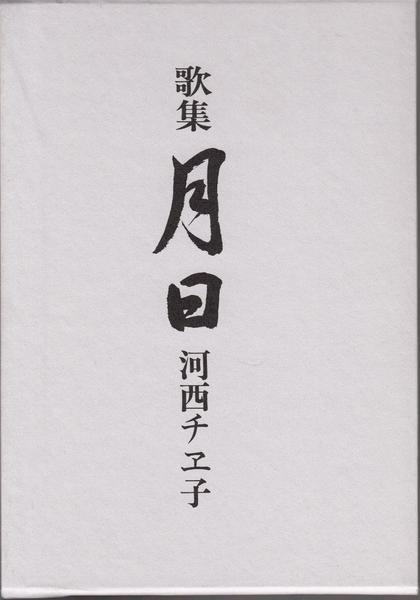 歌集 月日 河西チヱ子